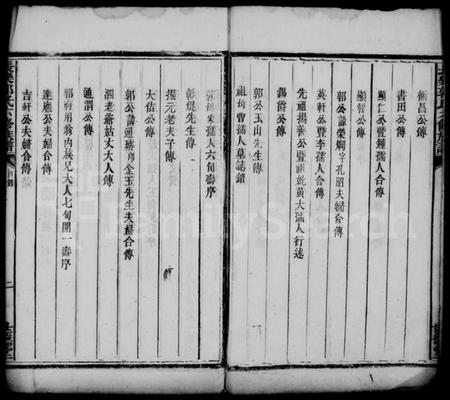 衡昌公傳
書田公傳
顯仁公暨鍾孺人合傳
顯智公傳
郭公諱榮炯字孔昭夫婦合傳
英軒公暨李孺人合傳
先祖揚善公暨祖妣黃大孺人行述
錫爵公傳
郭公玉山先生傳
祖母曾孺人墓誌銘
孺人六旬壽序
彰焜先生傳
振元老夫子傳
大佶公傳
郭公諱通瑹印金玉先生夫婦合傳
泗老爺姑丈大人傳
通渭公傳
郭府用翁內族兄大人七旬開一壽序
達應公夫婦合傳
吉軒公夫婦合傳
FamilySearch